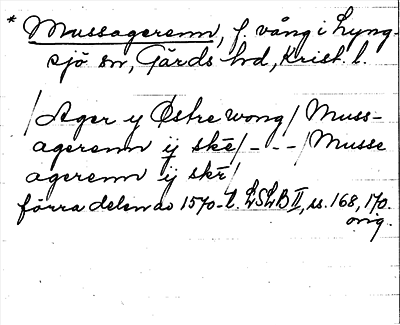 * Mussagerenn, f. vång i Lyng-
sjö sn, Gärds hd, Krist. l.
/Ager y Østre wong/Muss-
agerenn ij skē/- - -/Musse
agerenn ij skē/
förra delen av 1570-t. LSLB II, ss. 168, 170.
orig.